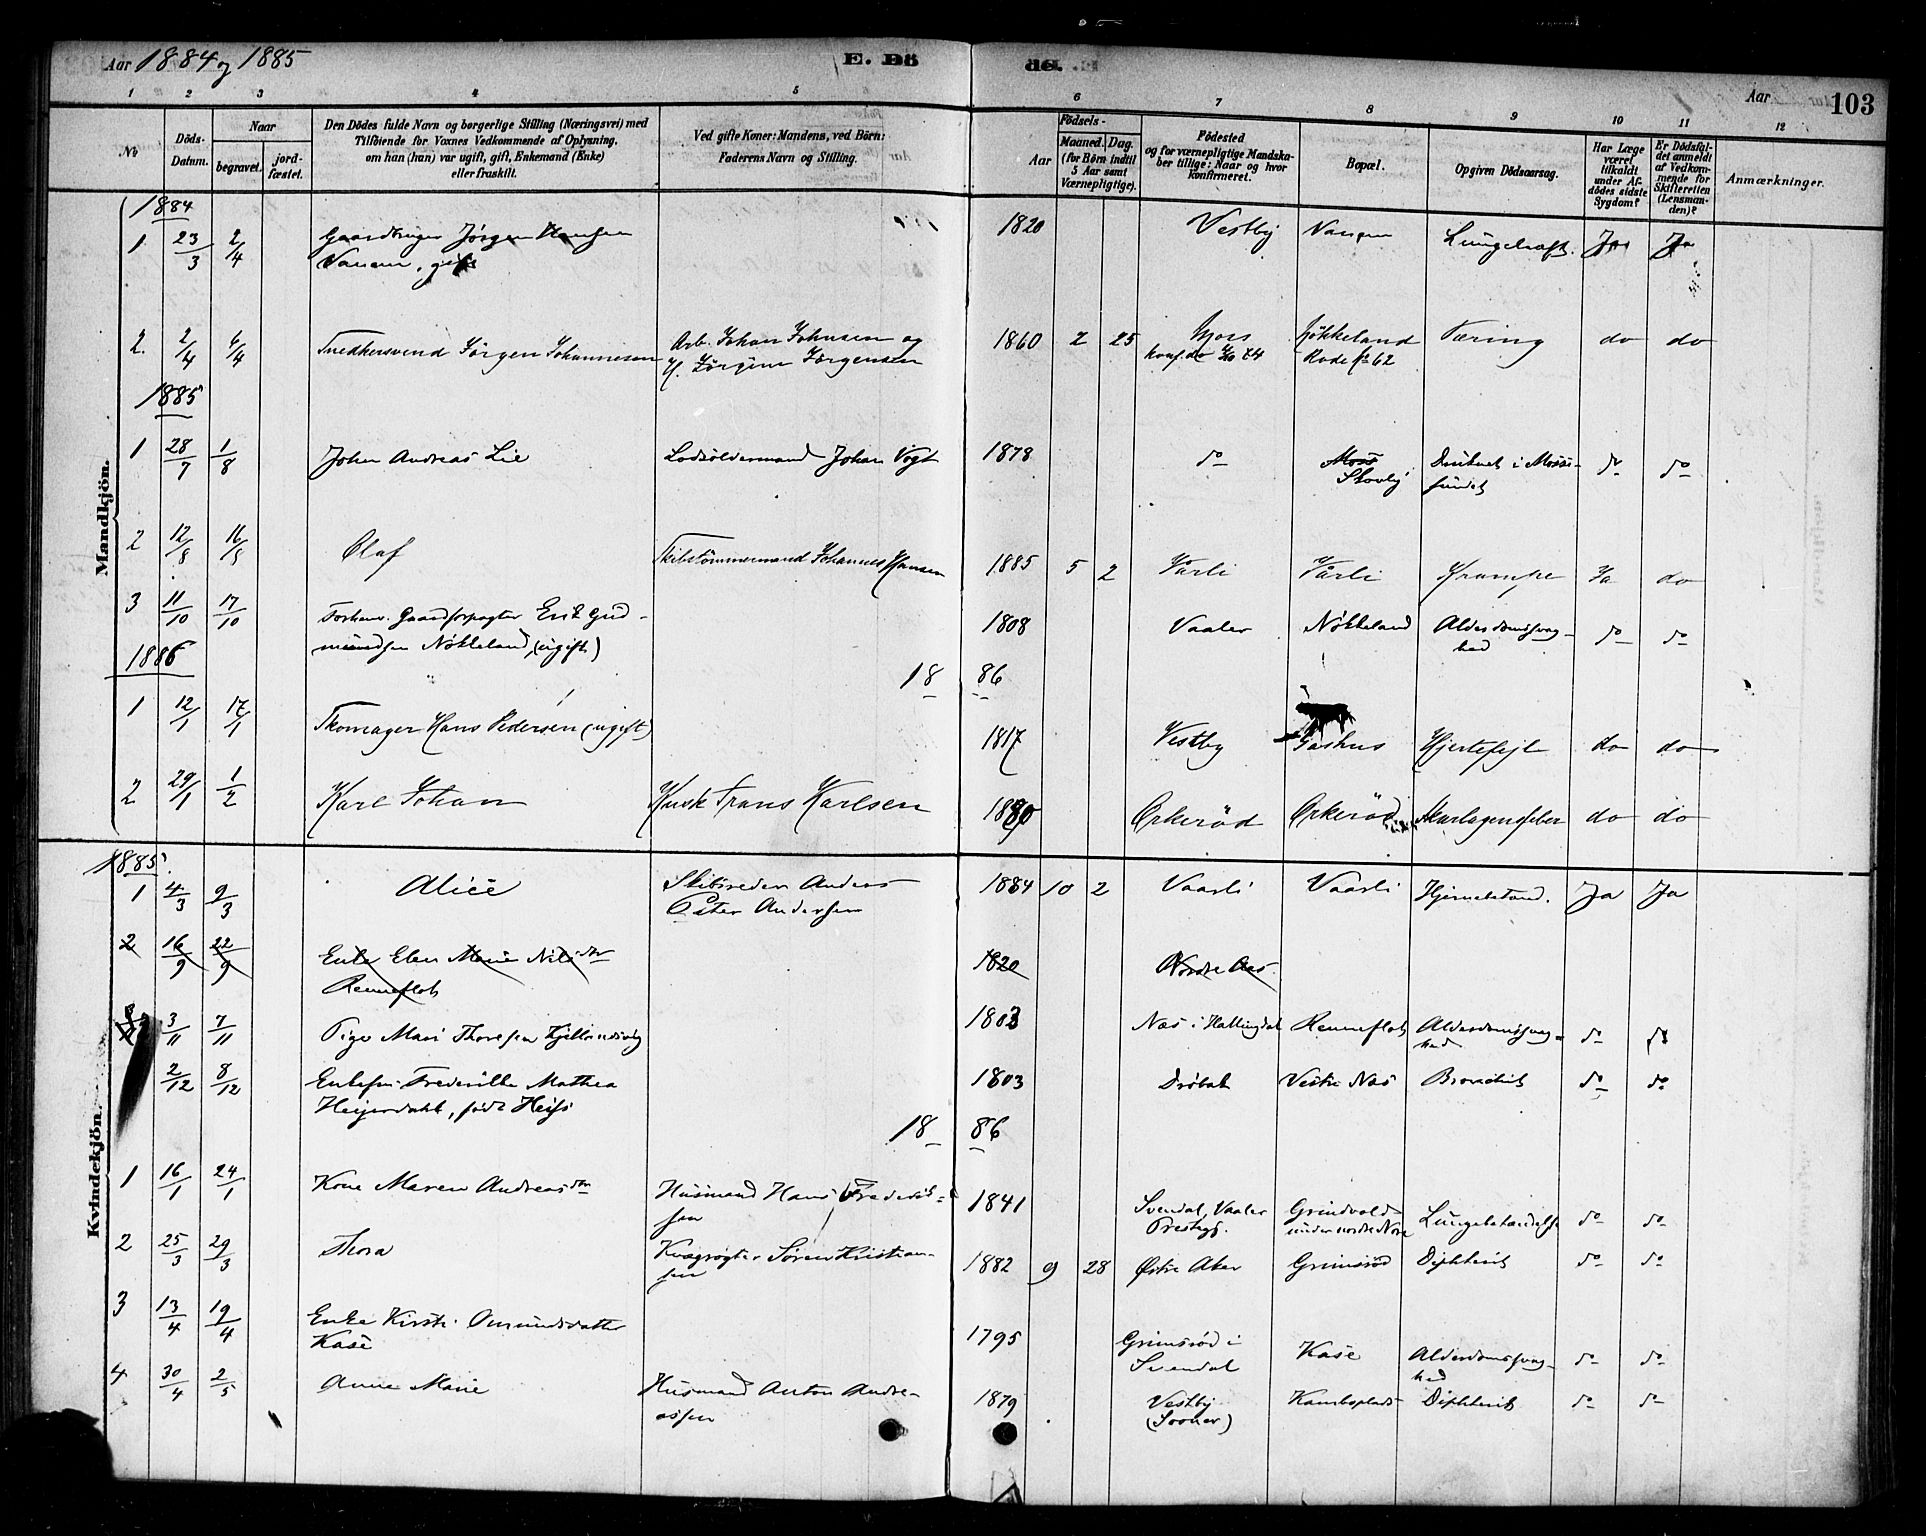 Aar 1884 og 1885
E. Dö
de.
Aar
103
1 2 3 4 5 6 7 8 9 10 11 12
No
Döds-Datum.
Naar
begravet.
jord-fæstet.
Den Dödes fulde Navn og borgerlige Stilling (Næringsvei) med
Tilföiende for Voxnes Vedkommende af Oplysning,
om han (hun) var ugift, gift, Enkemand (Enke)
eller fraskilt.
Ved gifte Koner: Mandens, ved Börn:
Faderens Navn og Stilling.
Födsels-
Aar
Maaned. Dag.
(for Börn indtil
5 Aar samt
Værnepligtige).
Födested
og for værnepligtige Mandska-
ber tillige: Naar og hvor
konfirmeret.
Bopæl.
Opgiven Dödsaarsag.
Har Læge
været
tilkaldt
under Af-
dödes sidste
Sygdom?
Er Dödsfal-
det anmeldt
af Vedkom-
mende for
Skifteretten
(Lensman-
den)?
Anmærkninger.
Mandkjön.
1884
1 23/3 2/4 Gaardbruger Jörgen Hansen 1820 Vestby Lungebetæ Ja Ja
2. 2/4 6/4 Snedkersvend Jörgen Johannesen Arb. Johan Johnsen og 1860 2 25 Moss Nökkeland Tæring do do
H. Jörgine Jörgensen konf. do 74 Rode No 62
1885
1 28/7 1/8 Johan Andreas Lie Lodsoldermand Johan Vogt 1878 do Moss Druknet i Mosse- do do
Skovby sundet
2 12/8 16/8 Olaf Skibstömmermand Johannes Hansen 1885 5 2 Vårli Vårli Krampe Ja do
3 11/10 17/10 Forhenv. Gaardforpagter Erik Gud- 1808 Vaaler Nökkeland Alderdomssvag- do do
mundsen Nökkeland, (ugift) hed
1886
18 86
1 12/1 17/1 Skomager Hans Pedersen (ugift) 1817 Vestby Gashus Hjertefejl do do
2 29/1 1/2 Karl Johan Kusk Frans Karlsen 1880 Orkeröd Orkeröd Skarlagensfeber do do
Kvindekjön.
1885
1 4/3 9/3 Alice Skibsreder Anders 1884 10 2 Vaarli Vaarli Hjernebetænd. Ja Ja
Peter Andersen
2 16/9 22/9 Enke Elen Marie Nilsdtr 1820 Nordre Aas
Renneflot
3/11 7/11 Pige Mari Thoresen 1803 Næs i Hallingdal Renneflot Alderdomssvag- do do
hed
2/12 8/12 Enkefru Frederikke Mathea 1803 Dröbak Vestre Næs Bronchit do do
Heijerdahl, född Heiss
18 86
1 16/1 24/1 Kone Maren Andreasdtr Husmand Hans Frederik- 1841 Svendal, Vaaler Grindvold Lungebetændelse do do
sen Prestegj. under nordre
2 25/3 29/3 Thora Kvægrögter Sören Kristian- 1882 9 28 Östre Aker Grimsröd Diphterit do do
sen
3 13/4 19/4 Enke Kirsti Omundsdatter 1795 Grimsröd i Kase Alderdomssvag- do do
Kase Svendal hed
4 30/4 2/5 Anne Marie Husmand Anton Andre- 1879 Vestby Kamboplads Diphterit do do
assen (Sooner)